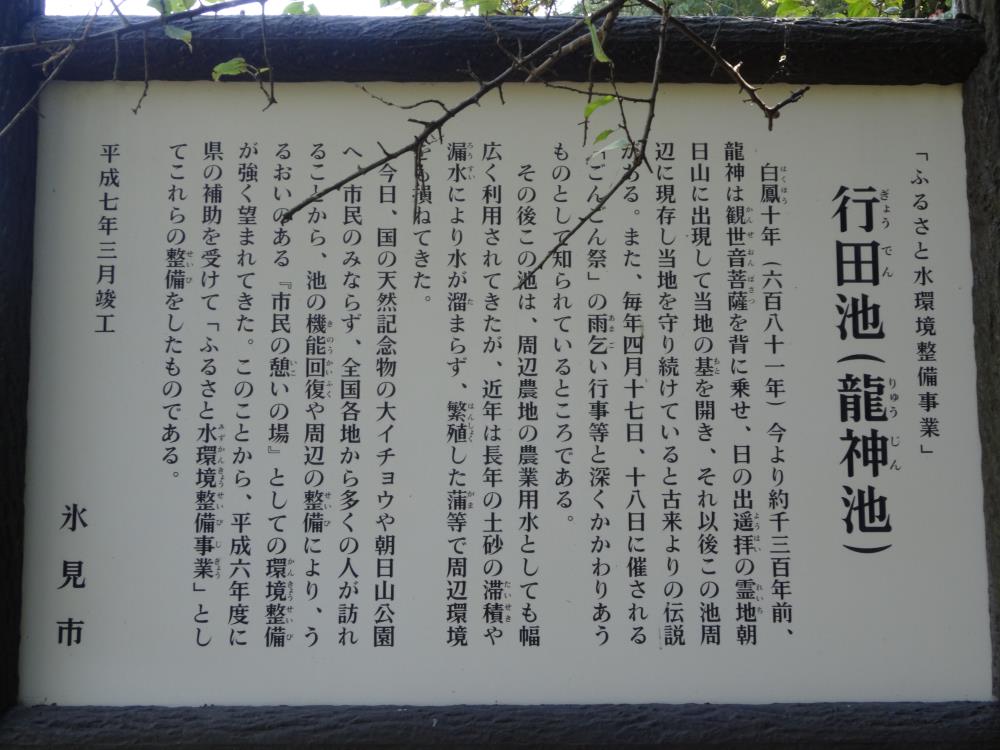 「ふるさと水環境整備事業」
行田池（龍神池）
白鳳十年（六百八十一年）今より約千三百年前、
龍神は観世音菩薩を背に乗せ、日の出遥拝の霊地朝
日山に出現して当地の基を開き、それ以後この池周
辺に現存し当地を守り続けていると古来よりの伝説
がある。また、毎年四月十七日、十八日に催される
「ごんごん祭」の雨乞い行事等と深くかかわりあう
ものとして知られているところである。
その後この池は、周辺農地の農業用水としても幅
広く利用されてきたが、近年は長年の土砂の滞積や
漏水により水が溜まらず、繁殖した蒲等で周辺環境
をも損ねてきた。
今日、国の天然記念物の大イチョウや朝日山公園
へ、市民のみならず、全国各地から多くの人が訪れ
ることから、池の機能回復や周辺の整備により、う
るおいのある『市民の憩いの場』としての環境整備
が強く望まれてきた。このことから、平成六年度に
県の補助を受けて「ふるさと水環境整備事業」とし
てこれらの整備をしたものである。
平成七年三月竣工
氷見市